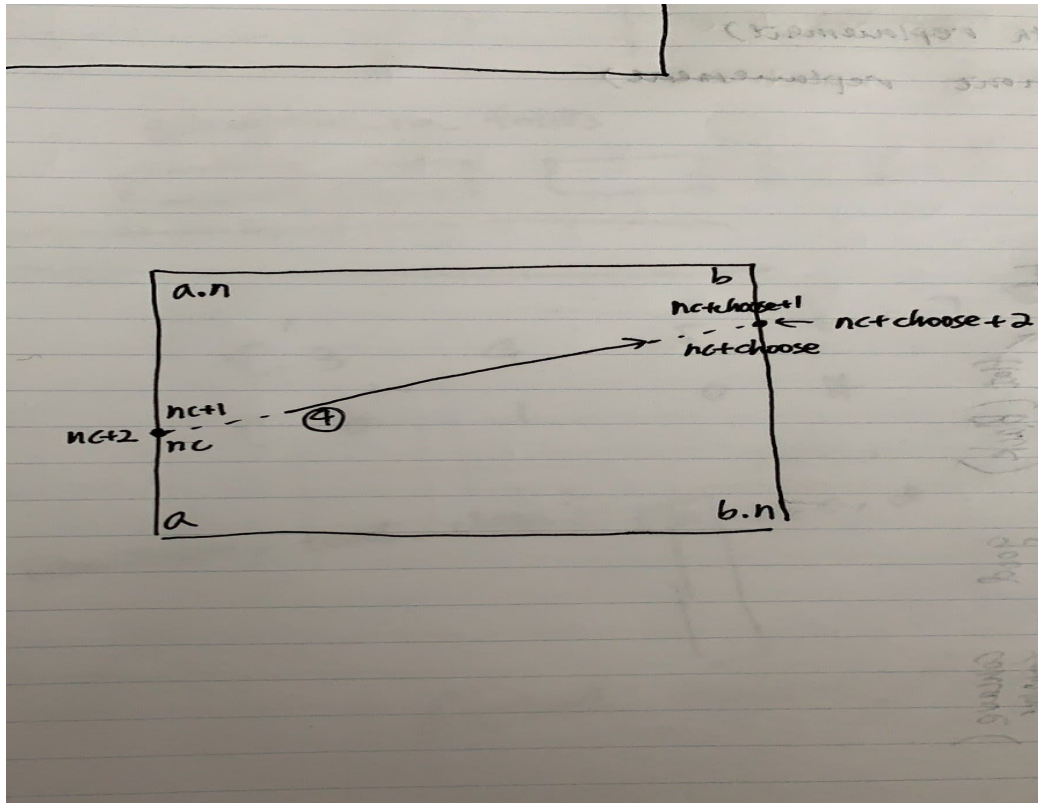 a.n
b
nc+choose+1
nc+choose+2
nc+choose
nc+1
4
nc+2
nc
a
b.n